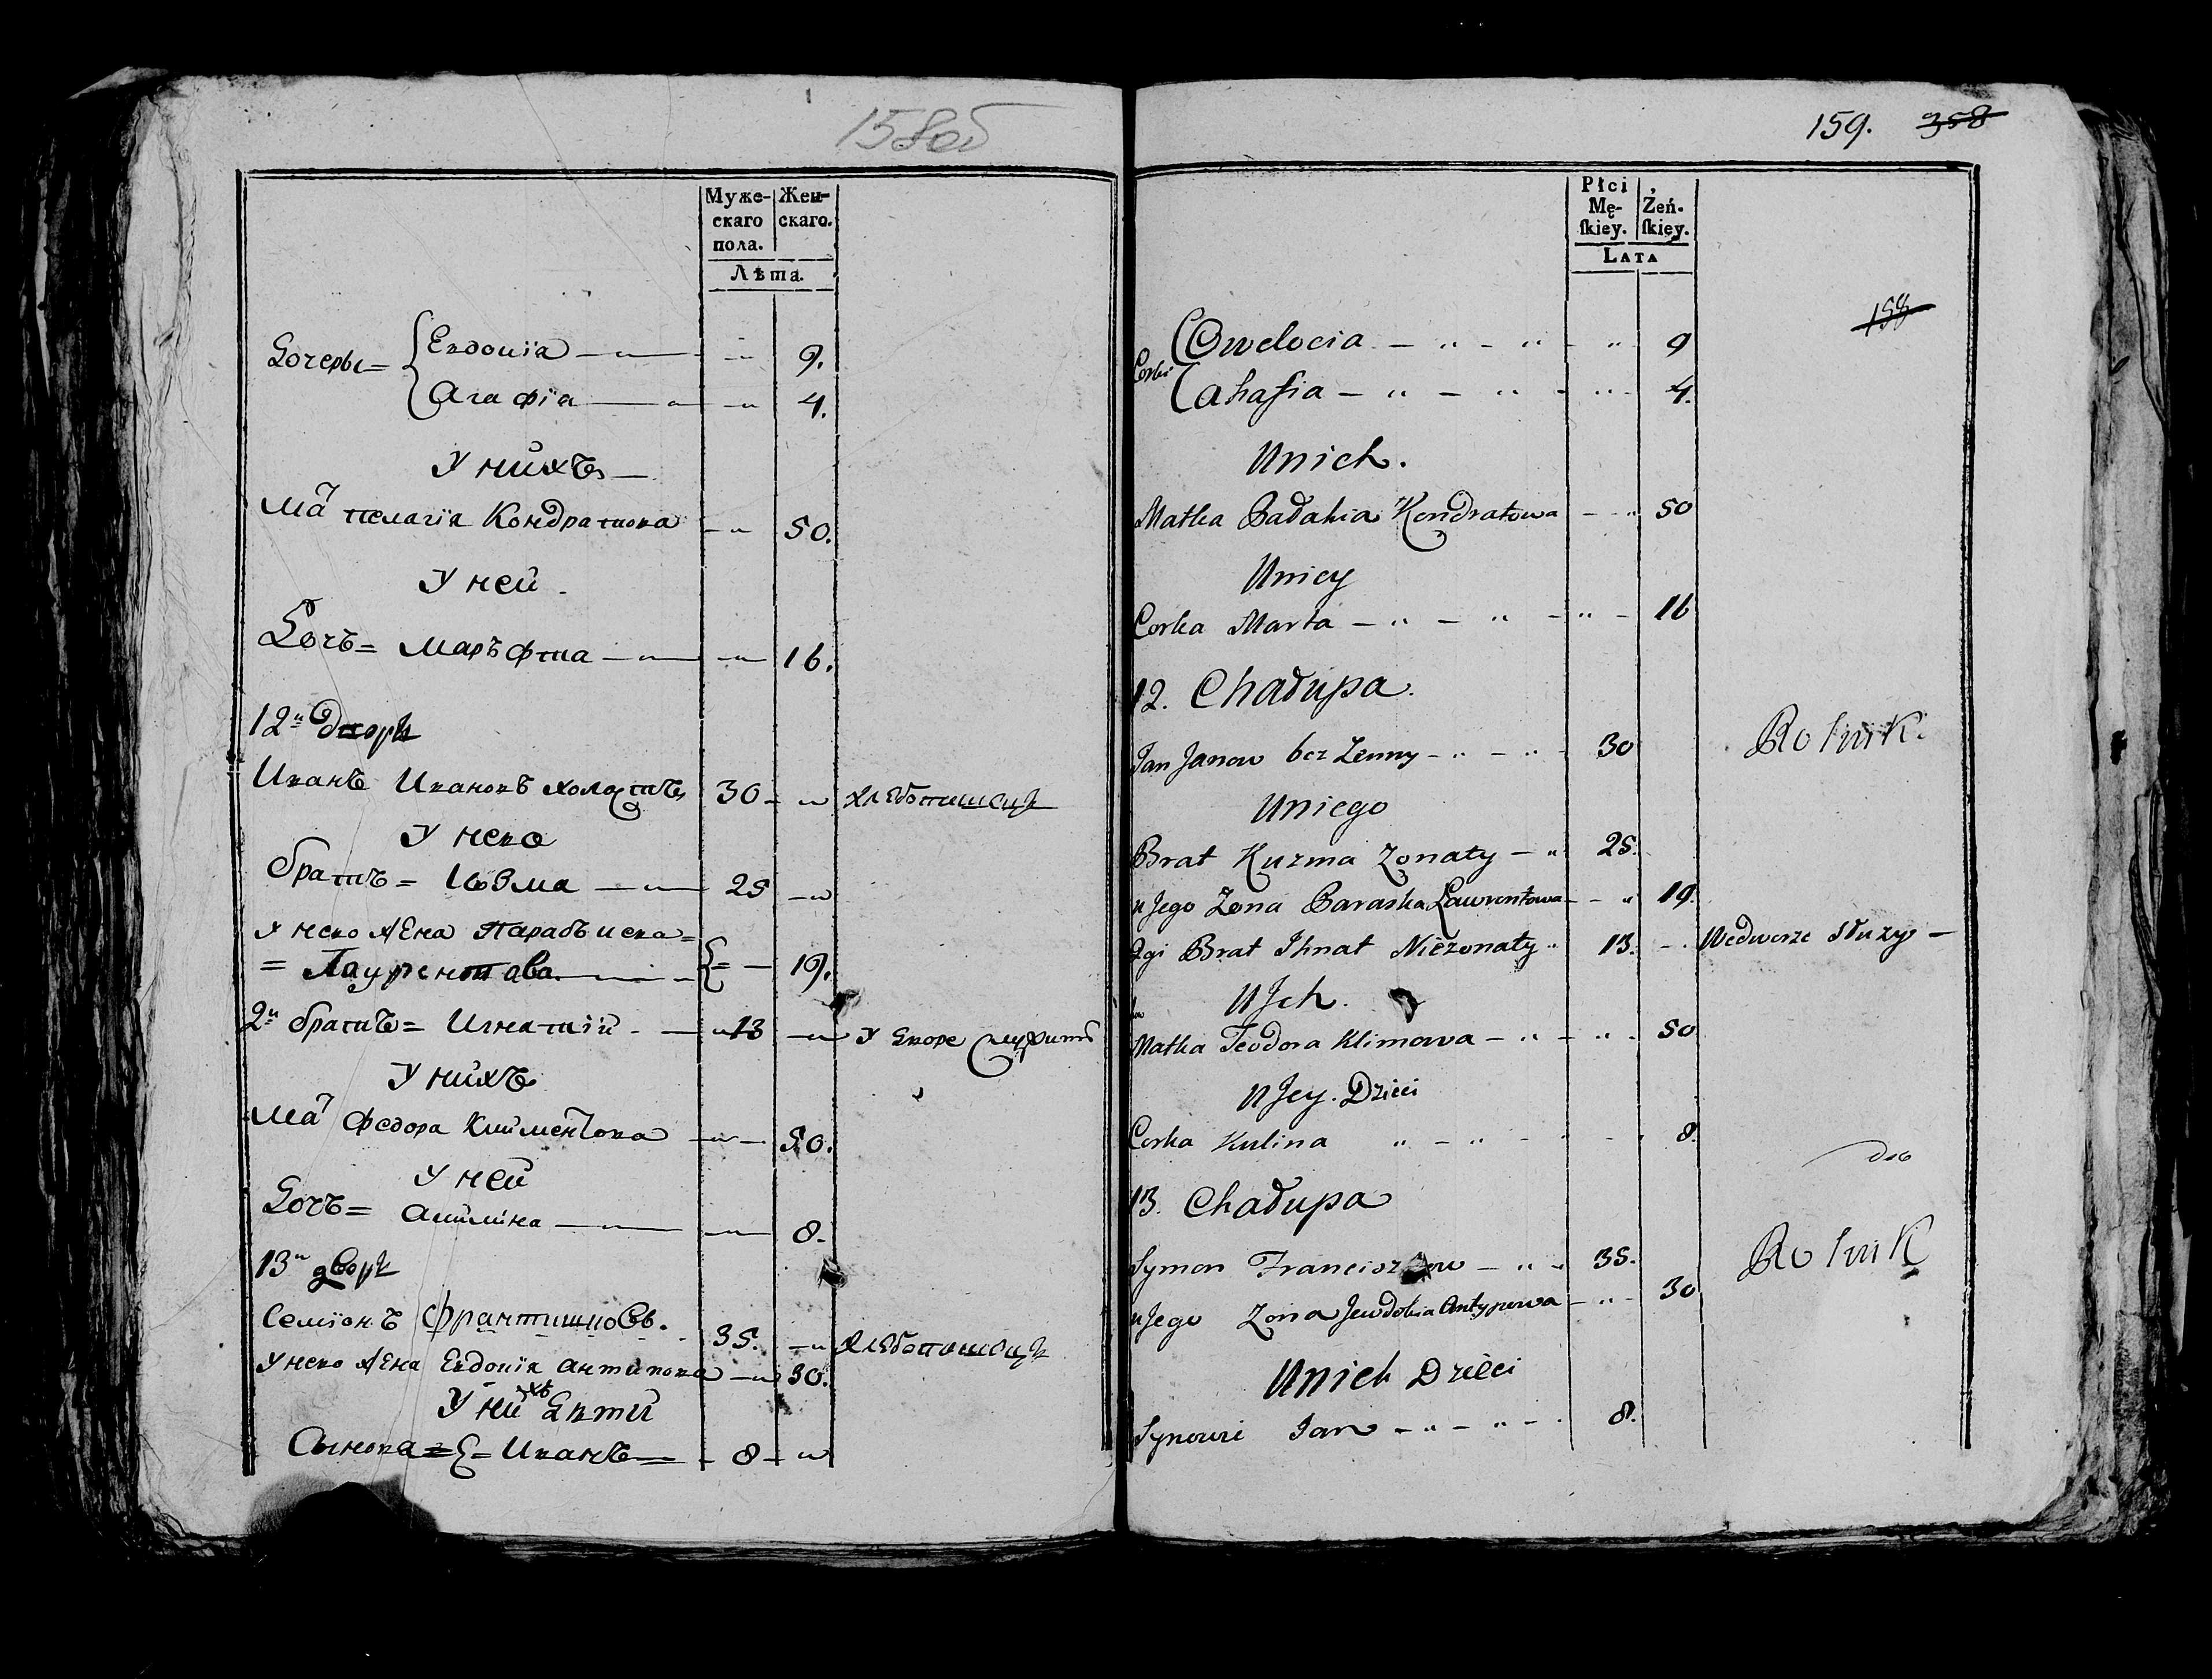 158об
Муже- Жен-
скаго скаго.
пола.
Лѣта.
Дочеры = { Евдокія — „ — 9.
Агафія — „ — 4.
У нихъ —
Ма͠т Пелагія Кондратова — „ 50.
У ней
Дочъ = Маръфта — „ — 16.
12й дворъ
Иванъ Ивановъ холостъ 30 — „ хлебопашецъ
У нево
братъ = Козма — „ — 25 — „
У нево жена Парасъкева =
= Лаурентава — 19.
2й братъ = Игнатій — „ 13 — „ У дворе служитъ
У нихъ
Ма͠т Федора Климентова — „ — 50.
У ней
Дочъ = Акилина — „ — 8.
13й дворъ
Семіонъ Францишковъ. 35. — „ хлебопашецъ
У нево жена Евдокія Антипова — „ 30.
У нихъ дѣти
Сынова = { = Иванъ — 8 — „
159. 358
Płci
Mę- Żeń-
ſkiey. ſkiey.
LATA
158
Corki ( Owdocia — „ — „ — „ 9
( Ahafia — „ — „ — „ 4.
Unich.
Matka Pałahia Kondratowa — „ 50
Uniey
Corka Marta — „ — „ — „ — 16
12. Chałupa.
Jan Janow bez Zenny — „ — „ 30 Rolnik.
Uniego
Brat Kuzma Zonaty — „ 25.
u Jego Zona Paraska Lawrentowa — „ 19.
2gi Brat Ihnat Niezonaty „ 13. — Wedworze Służy —
U Jch.
Matka Teodora Klimowa — „ — „ 50
U Jey. Dzieci
Corka Kulina „ — „ — 8.
13. Chałupa
Symon Franciszkow — „ 35. Rolnik
u Jego Zona Jewdokia Antypowa — „ 30
Unich Dzieci
Synowie Jan — „ — „ — 8.